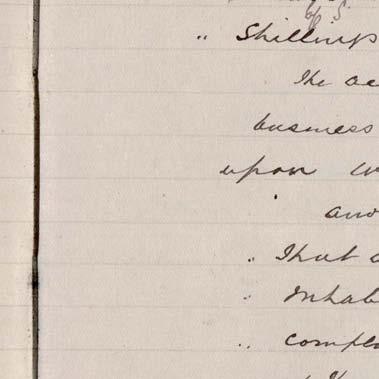 of S.
" Shillings
The ac
business
upon w
and
" That a
" Inhab
" comple